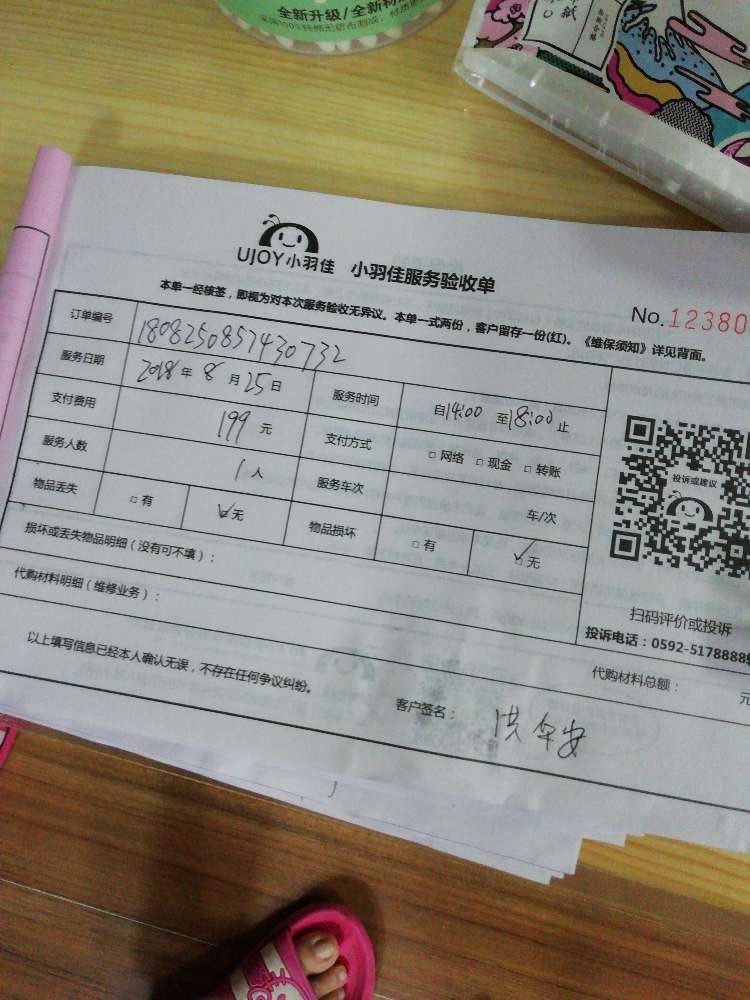 全新升级/全新材
UJOY小羽佳 小羽佳服务验收单
No.12380
本单一经核签，即视为对本次服务验收无异议。本单一式两份，客户留存一份(红)。《维保须知》详见背面。
订单编号 1808250857430732
服务日期 2018年8月25日 服务时间 自14:00至18:00止
支付费用 199元 支付方式 □网络 □现金 □转账
服务人数 1人 服务车次 车/次
物品丢失 □有 ☑无 物品损坏 □有 ☑无
投诉或建议
损坏或丢失物品明细（没有可不填）：
扫码评价或投诉
代购材料明细（维修业务）：
投诉电话：0592-5178888
代购材料总额： 元
以上填写信息已经本人确认无误，不存在任何争议纠纷。
客户签名：洪